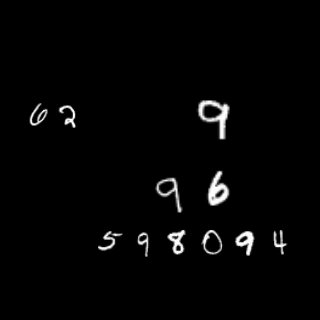 62 9
96
598094